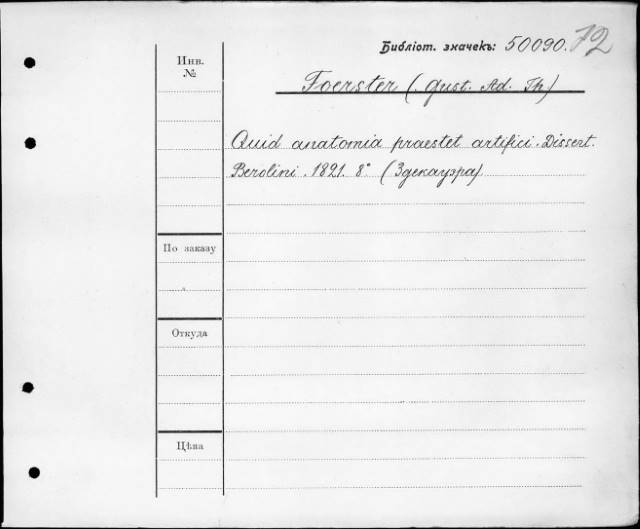 Библіот. значекъ: 50090. 72
Инв. №
Foerster (Gust. Ad. Th)
Quid anatomia praestet artifici. Dissert.
Berolini. 1821. 8° (Здекауэра)
По заказу
Откуда
Цѣна